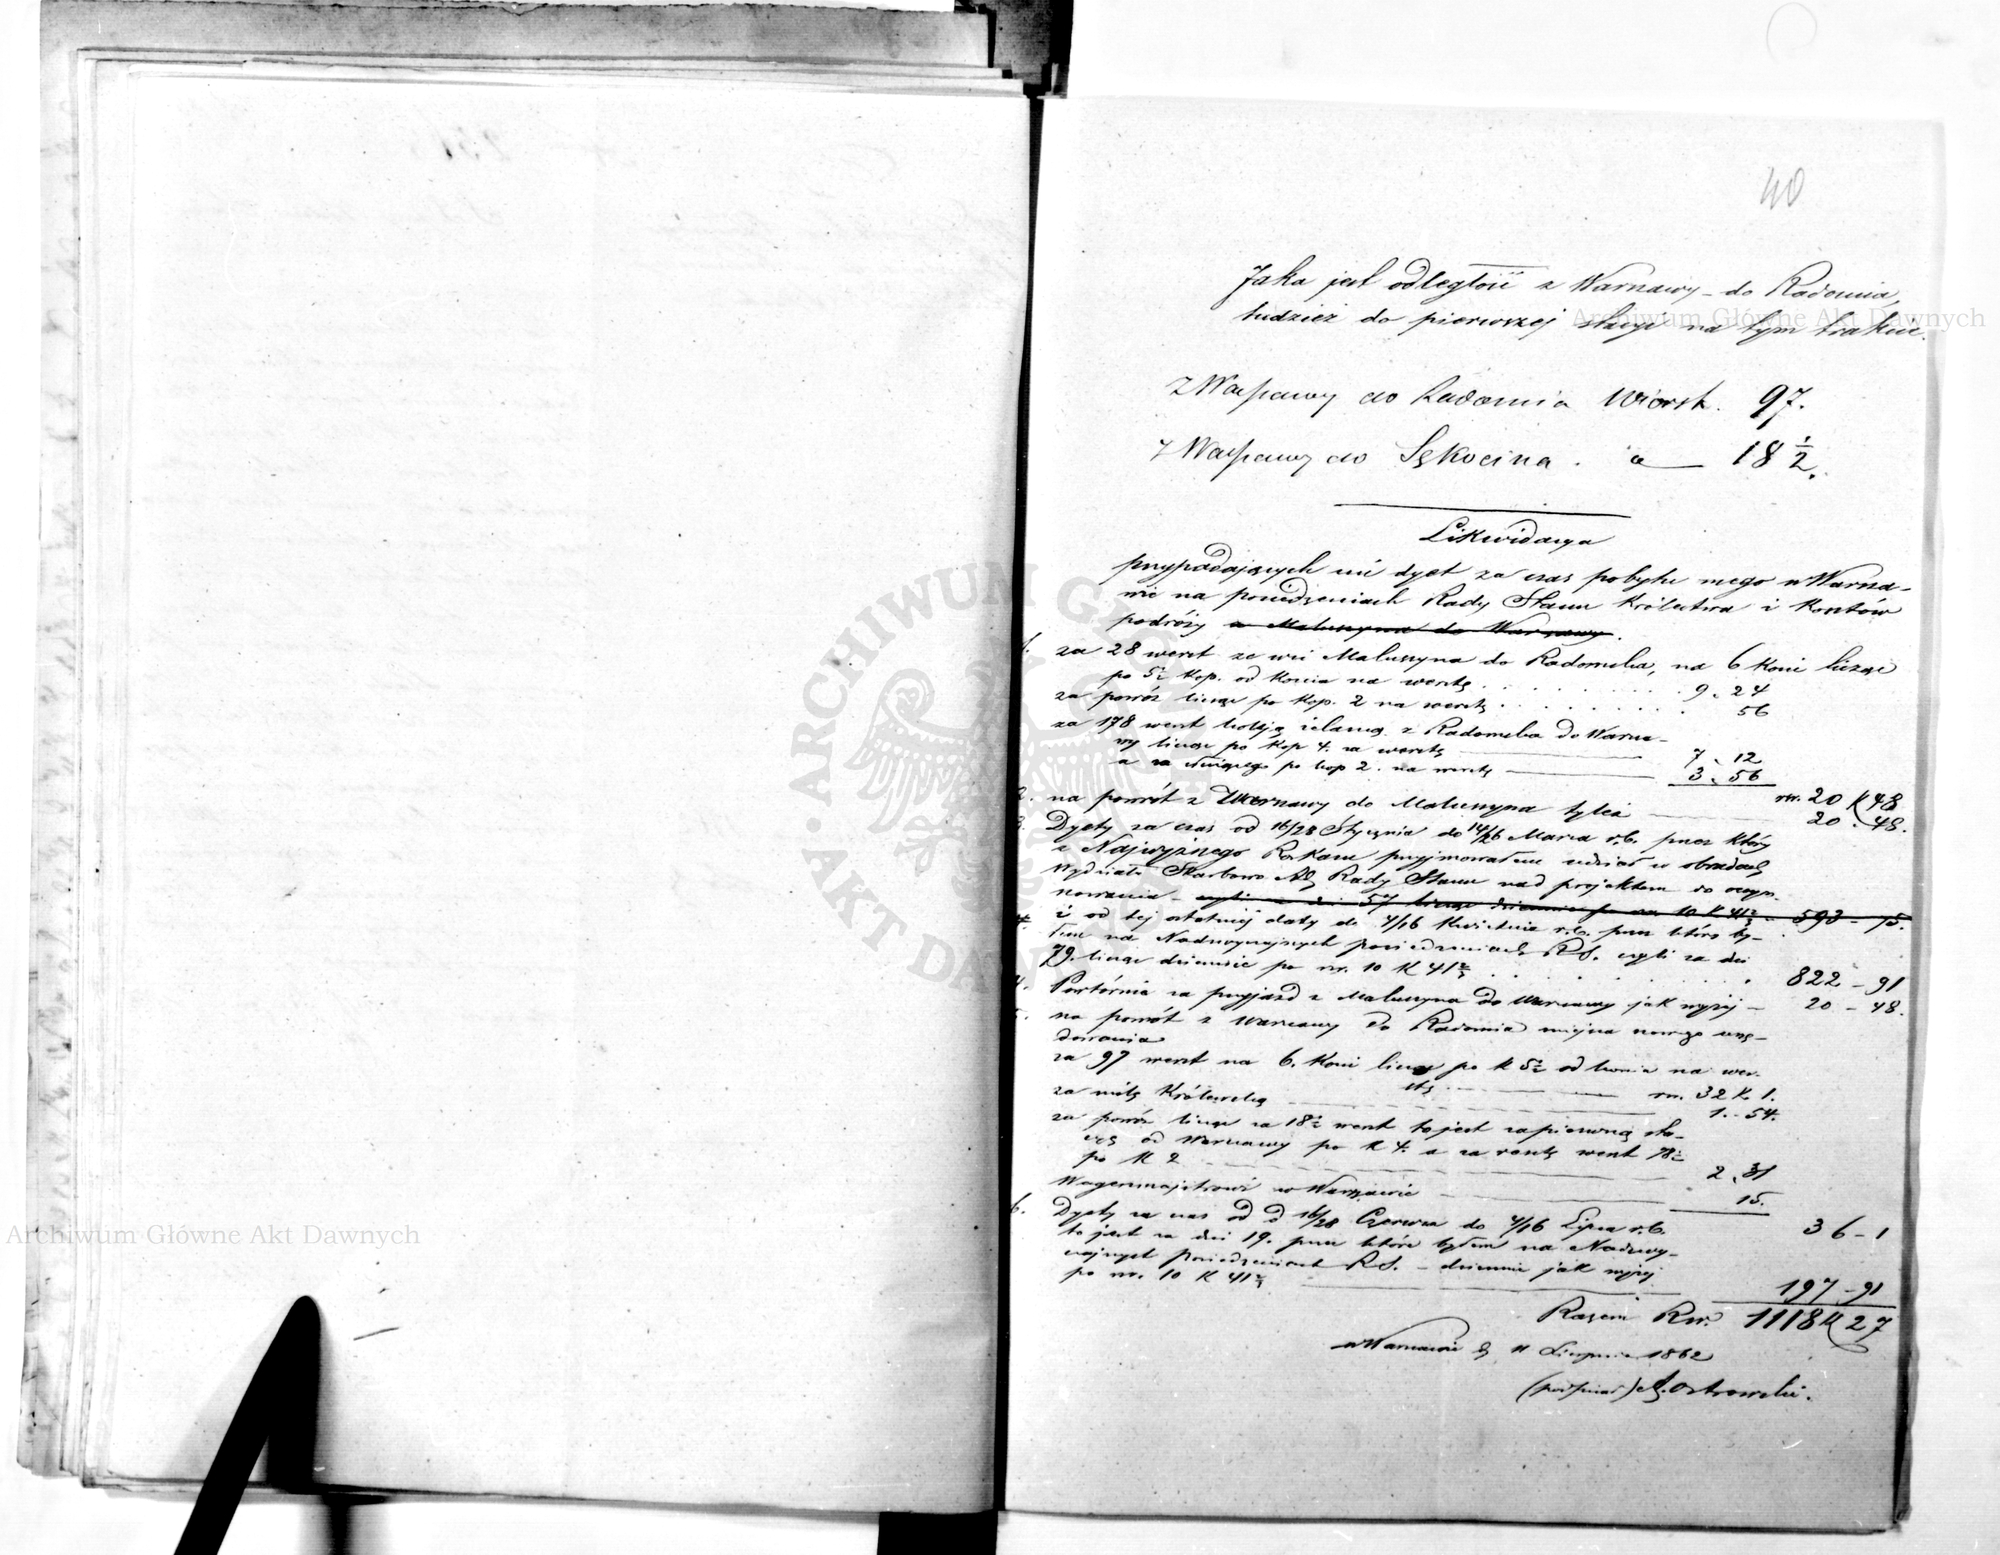 40
Jaka jest odległość z Warszawy do Radomia,
tudzież do pierwszej stacyi na tym trakcie.
Z Warszawy do Radomia Wiorst. 97.
Z Warszawy do Sękocina . a — 18 1/2.
Likwidacya
przypadających mi dyet za czas pobytu mego w Warsza-
wie na posiedzeniach Rady Stanu Królestwa i kosztów
podróży z Maluszyna do Warszawy.
1. za 28 werst ze wsi Maluszyna do Radomska, na 6 koni licząc
po 5 1/2 kop. od konia na werstę . . . . . . . 9. 24
za powóz licząc po kop. 2 na werstę . . . . . . . 56
za 178 werst koleją żelazną z Radomska do Warsza-
wy licząc po kop 4. za werstę — 7. 12
a za służącego po kop 2. na werstę — 3. 56
rsr. 20 K 48
2. na powrót z Warszawy do Maluszyna tyleż — 20. 48.
3. Dyety za czas od 16/28 Stycznia do 14/26 Marca r.b. przez który
z Najwyższego Rozkazu przyjmowałem udział w obradach
Wydziału Skarbowo Ad. Rady Stanu nad projektem do oczyn-
szowania – czyli za dni 57 licząc dziennie po rsr. 10 K 41 2/3 – 593 – 75.
i od tej ostatniej daty do 4/16 Kwietnia r.b. przez które by-
łem na Nadzwyczajnych posiedzeniach R.S. czyli za dni
79. licząc dziennie po rsr. 10 K 41 2/3 . . . . . . 822 – 91
4. Powtórnie za przyjazd z Maluszyna do Warszawy jak wyżej – 20 – 48.
5. na powrót z Warszawy do Radomia miejsca mego urzę-
dowania
za 97 werst na 6. koni licząc po K 5 1/2 od konia na wer-
stę — rsr. 32 K. 1.
za milę Królewską — 1. 54.
za powóz licząc za 18 1/2 werst to jest za pierwszą sta-
cyę od Warszawy po K 4. a za resztę werst 78 1/2
po K 2 — 2. 31
Wagenmajstrowi w Warszawie — 15.
36 – 1
6. Dyety za czas od d 16/28 Czerwca do 4/16 Lipca r.b.
to jest za dni 19. przez które byłem na Nadzwy-
czajnych Posiedzeniach R.S. – dziennie jak wyżej
po rsr. 10 K 41 2/3 — 197 – 91
Razem Rsr. 1118 K 27
w Warszawie d. 11 Sierpnia 1862
(podpisał) A. Ostrowski.
Archiwum Główne Akt Dawnych
Archiwum Główne Akt Dawnych
ARCHIWUM GŁÓWNE AKT DAWNYCH